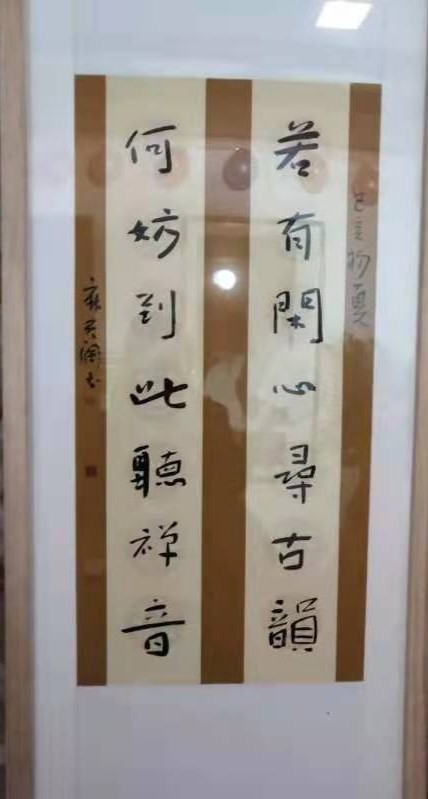 己亥初夏
若有閑心尋古韻
何妨到此聽禅音